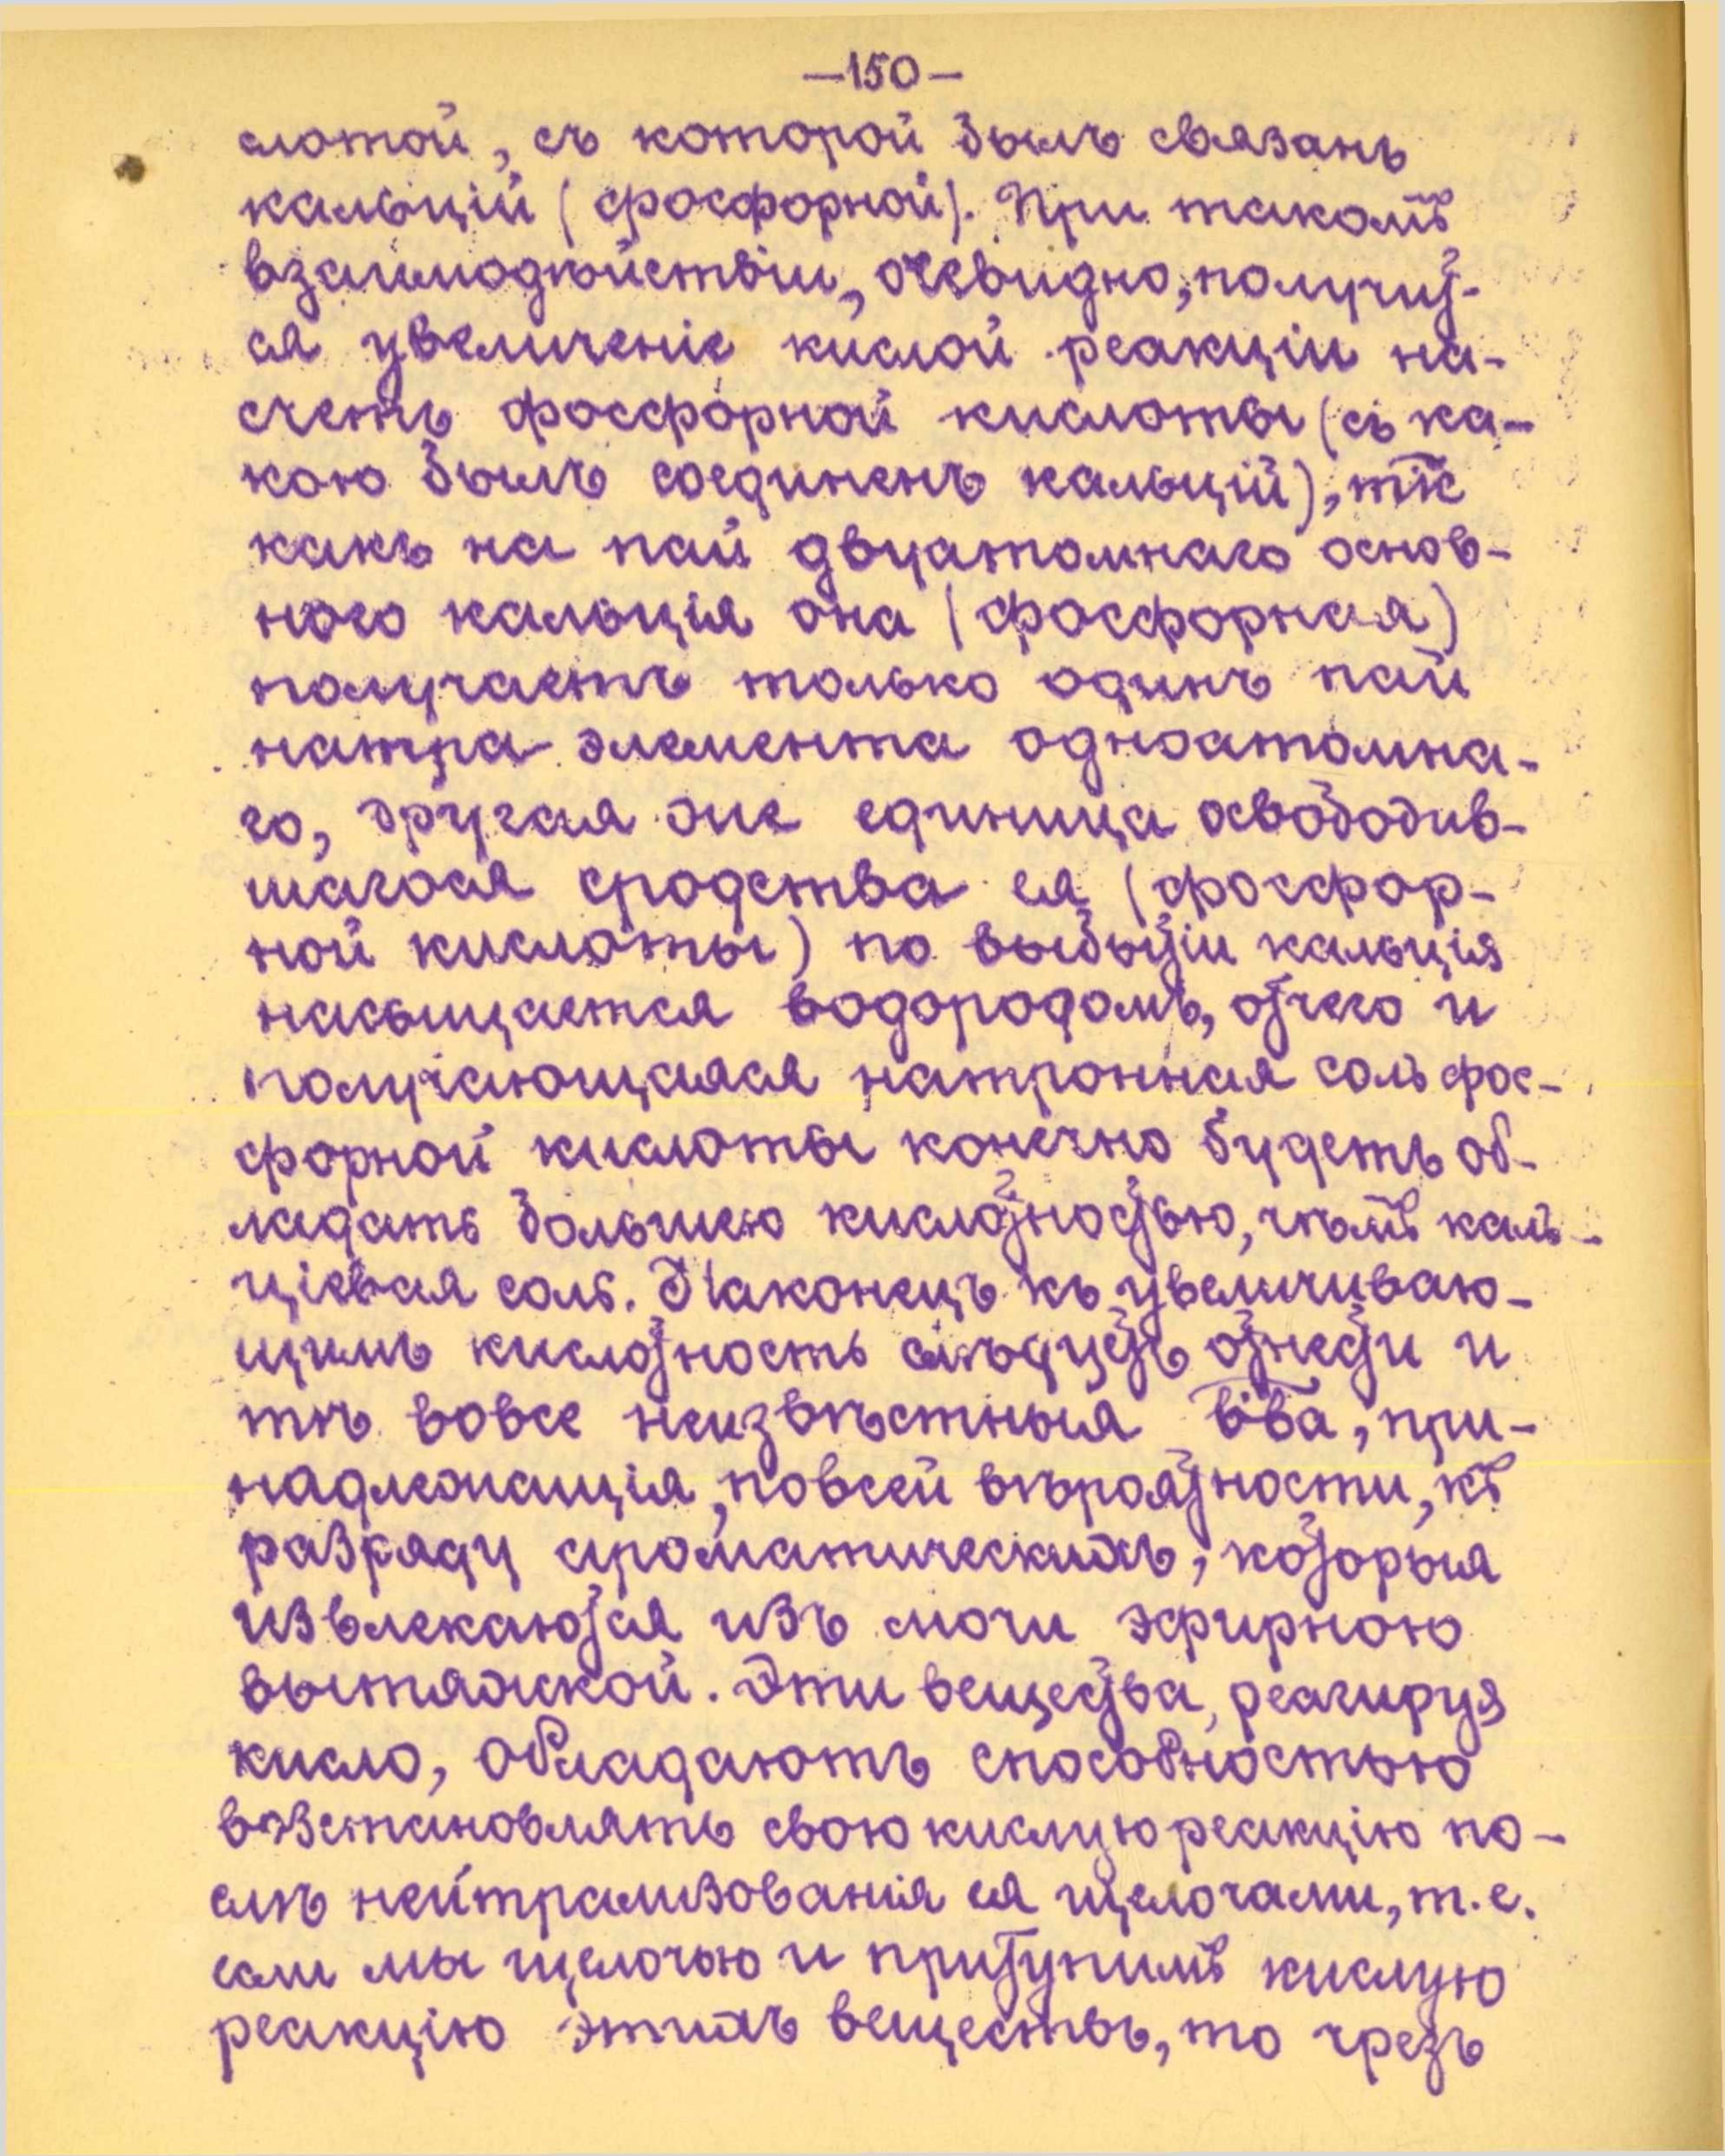 —150—
слотой, съ которой былъ связанъ
кальцій (фосфорной). При такомъ
взаимодѣйствіи, очевидно, получит-
ся увеличеніе кислой реакціи на-
счетъ фосфорной кислоты (съ ка-
кою былъ соединенъ кальцій), так
какъ на пай двуатомнаго основ-
ного кальція она (фосфорная)
получаетъ только одинъ пай
натра элемента одноатомна-
го, другая же единица освободив-
шагося сродства ея (фосфор-
ной кислоты) по выбытіи кальція
насыщается водородомъ, отчего и
получающаяся натронная соль фос-
форной кислоты конечно будетъ об-
ладать большею кислотностью, чѣмъ каль-
ціевая соль. Наконецъ къ увеличиваю-
щимъ кислотность слѣдуетъ отнести и
тѣ вовсе неизвѣстныя в-ва, при-
надлежащія, повсей вѣроятности, къ
разряду ароматическихъ, которыя
извлекаются изъ мочи эфирною
вытяжкой. Эти вещества, реагируя
кисло, обладаютъ способностью
возстановлять свою кислую реакцію по-
слѣ нейтрализованія ея щелочами, т.е.
если мы щелочью и притупимъ кислую
реакцію этихъ веществъ, то чрезъ